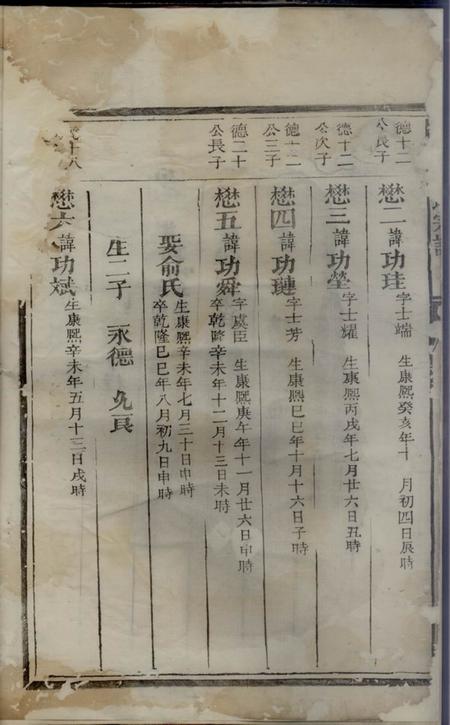 德十二
公長子
懋二諱功珪字士端 生康熙癸亥年十 月初四日辰時
德十二
公次子
懋三諱功瑩字士耀 生康熙丙戌年七月廿六日丑時
德十二
公三子
懋四諱功璉字士芳 生康熙己巳年十月十六日子時
德二十
公長子
懋五諱功舜字虞臣 生康熙庚午年十一月廿六日申時
卒乾隆辛未年十二月十三日未時
娶俞氏生康熙辛未年七月三十日申時
卒乾隆己巳年八月初九日申時
生二子 永德 九
十八
懋六諱功斌生康熙辛未年五月十三日戌時